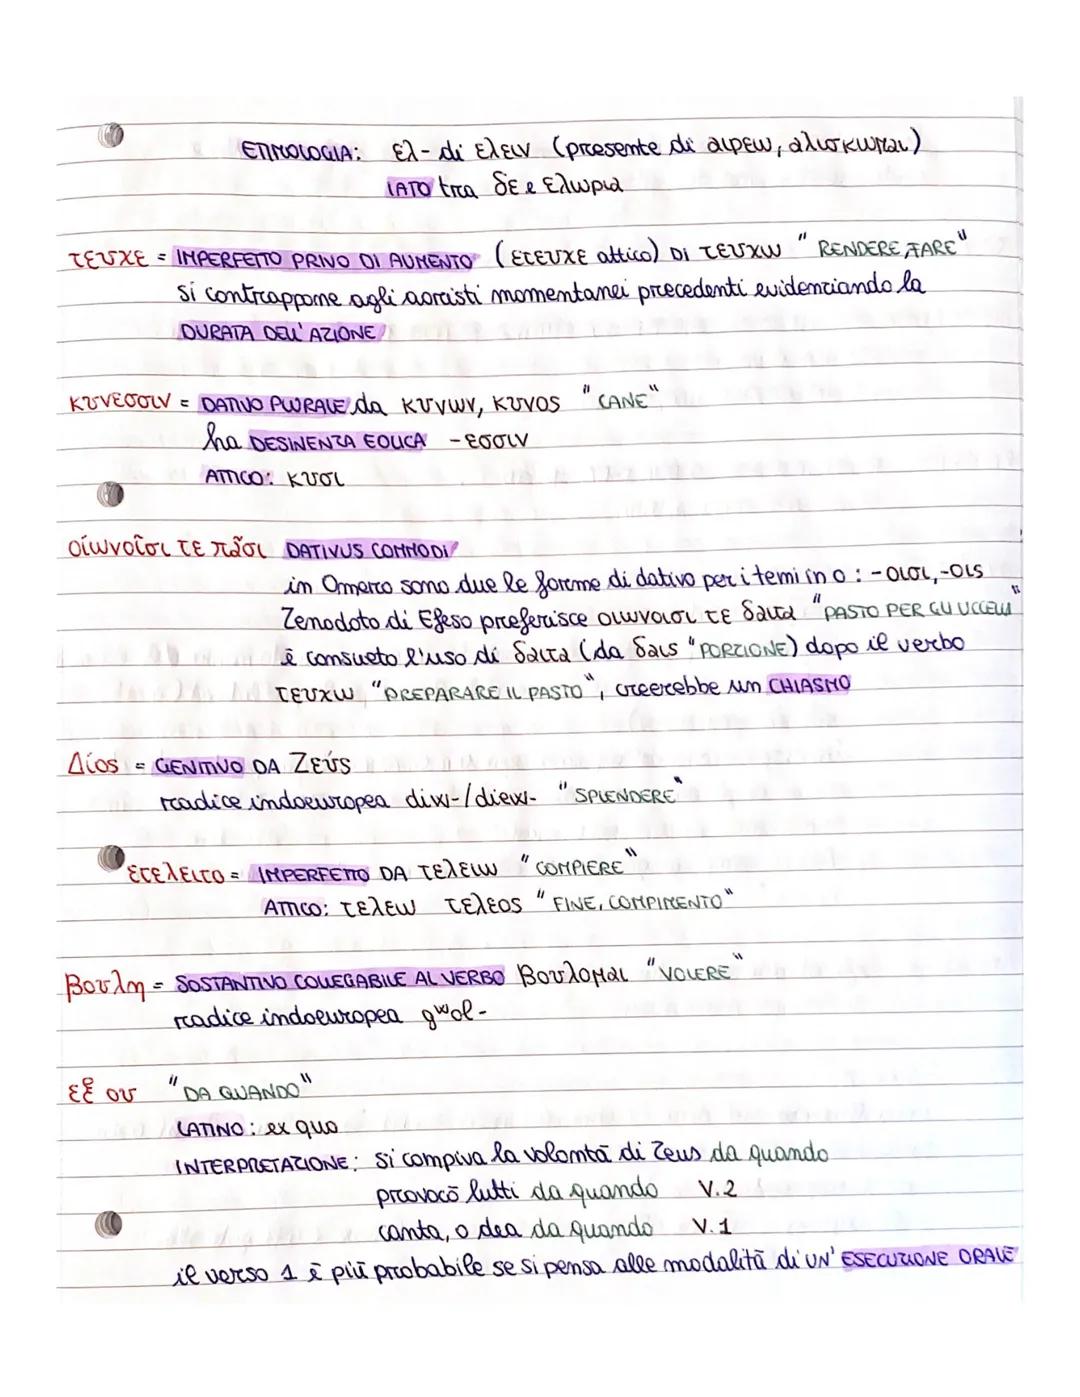 ETIMOLOGIA: ελ- di ελειν (presente di αιρεω, αλισκωμαι)
IATO tra δε e ελωρια
τευχε = IMPERFETTO PRIVO DI AUMENTO (ετευχε attico) DI τευχω "RENDERE, FARE"
si contrappone agli aoristi momentanei precedenti evidenziando la
DURATA DELL'AZIONE
κυνεσσιν = DATIVO PLURALE da κυνων, κυνος "CANE"
ha DESINENZA EOLICA -εσσιν
ATTICO: κυσι
οἰωνοῖσι τε πᾶσι DATIVUS COMMODI
in Omero sono due le forme di dativo per i temi in o: -οισι, -οις
Zenodoto di Efeso preferisce οιωνοισι τε δαιτα "PASTO PER GLI UCCELLI"
è consueto l'uso di δαιτα (da δαις "PORZIONE") dopo il verbo
τευχω "PREPARARE IL PASTO", creerebbe un CHIASMO
Δίος = GENITIVO DA Ζεύς
radice indoeuropea diw-/diew- "SPLENDERE"
ετελειτο = IMPERFETTO DA τελειω "COMPIERE"
ATTICO: τελεω τελεος "FINE, COMPIMENTO"
Βουλη = SOSTANTIVO COLLEGABILE AL VERBO Βουλομαι "VOLERE"
radice indoeuropea gʷol-
εξ ου "DA QUANDO"
LATINO: ex quo
INTERPRETAZIONE: si compiva la volontà di Zeus da quando
provocò lutti da quando V.2
canta, o dea da quando V.1
il verso 1 è più probabile se si pensa alle modalità di UN' ESECUZIONE ORALE